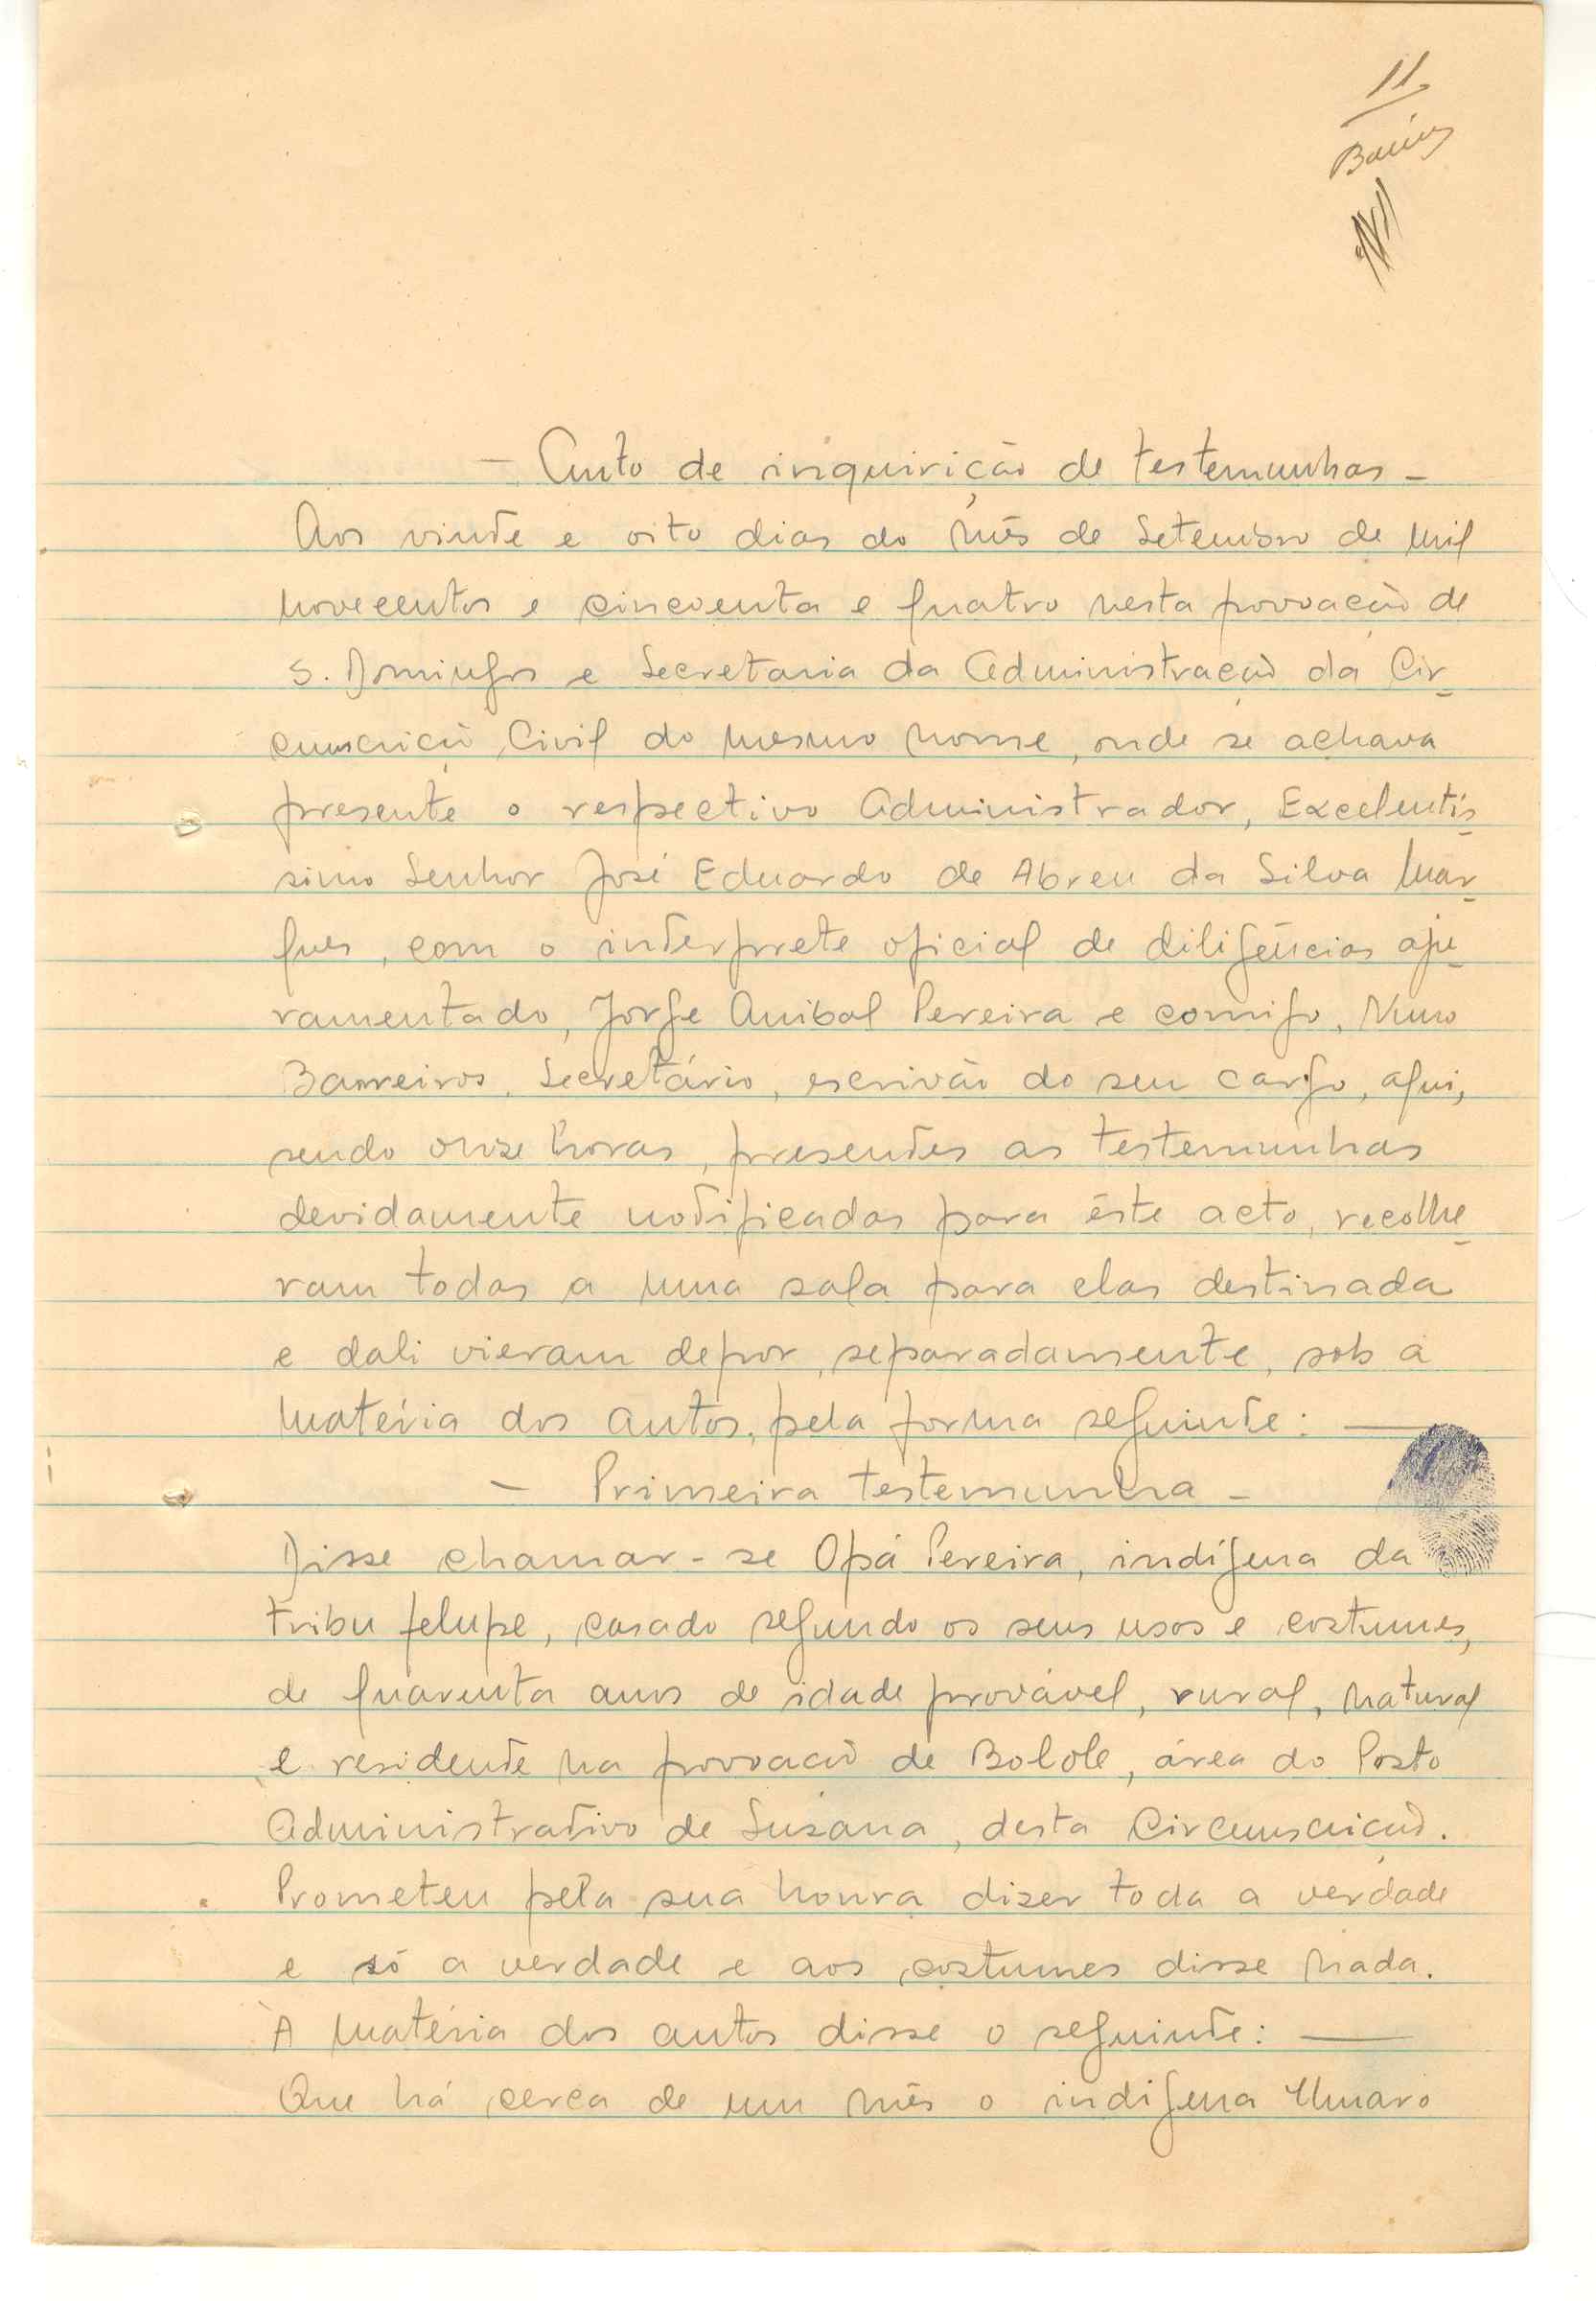 11
- Auto de inquirição de testemunhas -
Aos vinte e oito dias do mês de Setembro de mil
novecentos e cincoenta e quatro nesta povoação de
S. Domingos e Secretaria da Administração da Cir-
cunscrição Civil do mesmo nome, onde se achava
presente o respectivo Administrador, Excelentís-
simo Senhor José Eduardo de Abreu da Silva Mar-
ques, com o interprete oficial de diligências aju-
ramentado, Jorge Anibal Pereira e comigo, Nuno
Barreiros, Secretário, escrivão do seu cargo, aqui,
sendo onze horas, presentes as testemunhas
devidamente notificadas para êste acto, recolhe-
ram todas a uma sala para elas destinada
e dali vieram depor, separadamente, sob a
matéria dos autos, pela forma seguinte: —
- Primeira testemunha -
Disse chamar-se Opá Pereira, indígena da
tribu felupe, casado segundo os seus usos e costumes,
de quarenta anos de idade provável, rural, natural
e residente na povoação de Bolole, área do Posto
Administrativo de Suzana, desta Circunscrição.
Prometeu pela sua honra dizer toda a verdade
e só a verdade e aos costumes disse nada.
À matéria dos autos disse o seguinte: —
Que há cerca de um mês o indígena Umaro